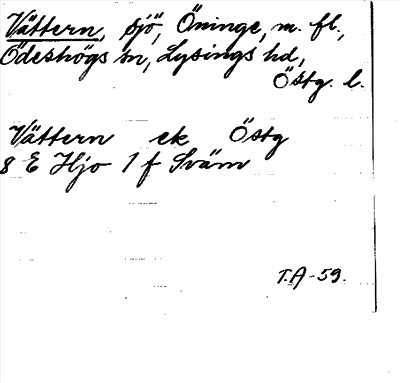 Vättern, sjö, Öninge, m. fl.,
Ödeshögs sn, Lysings hd,
Östg. l.
Vättern ek Östg
8 E Hjo 1 f Sväm
T.A-59.